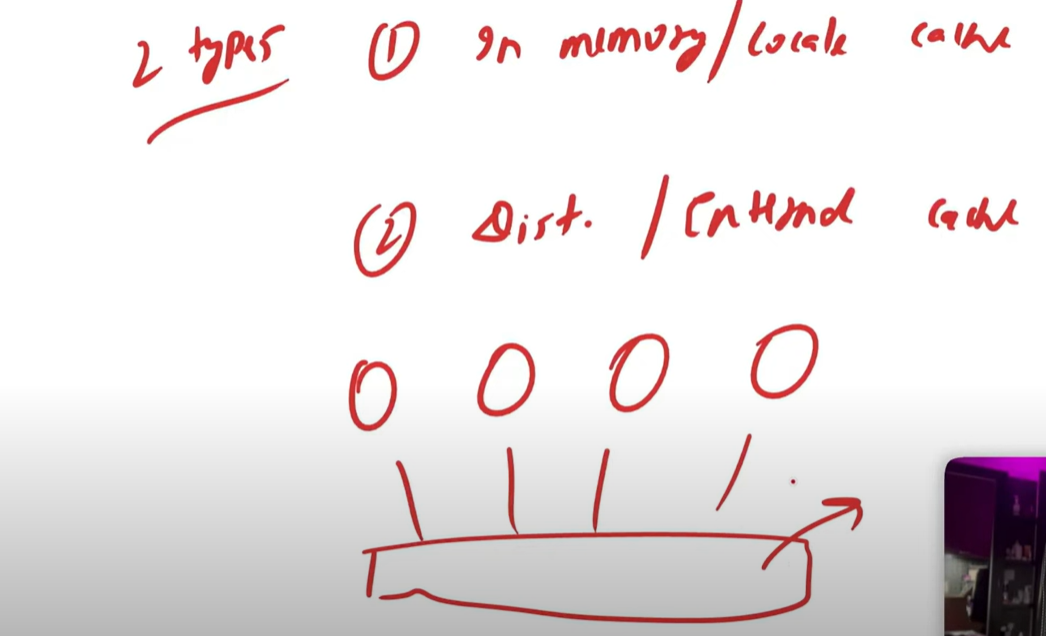 2 types ① In memory/Locale cache
② Dist. / External cache